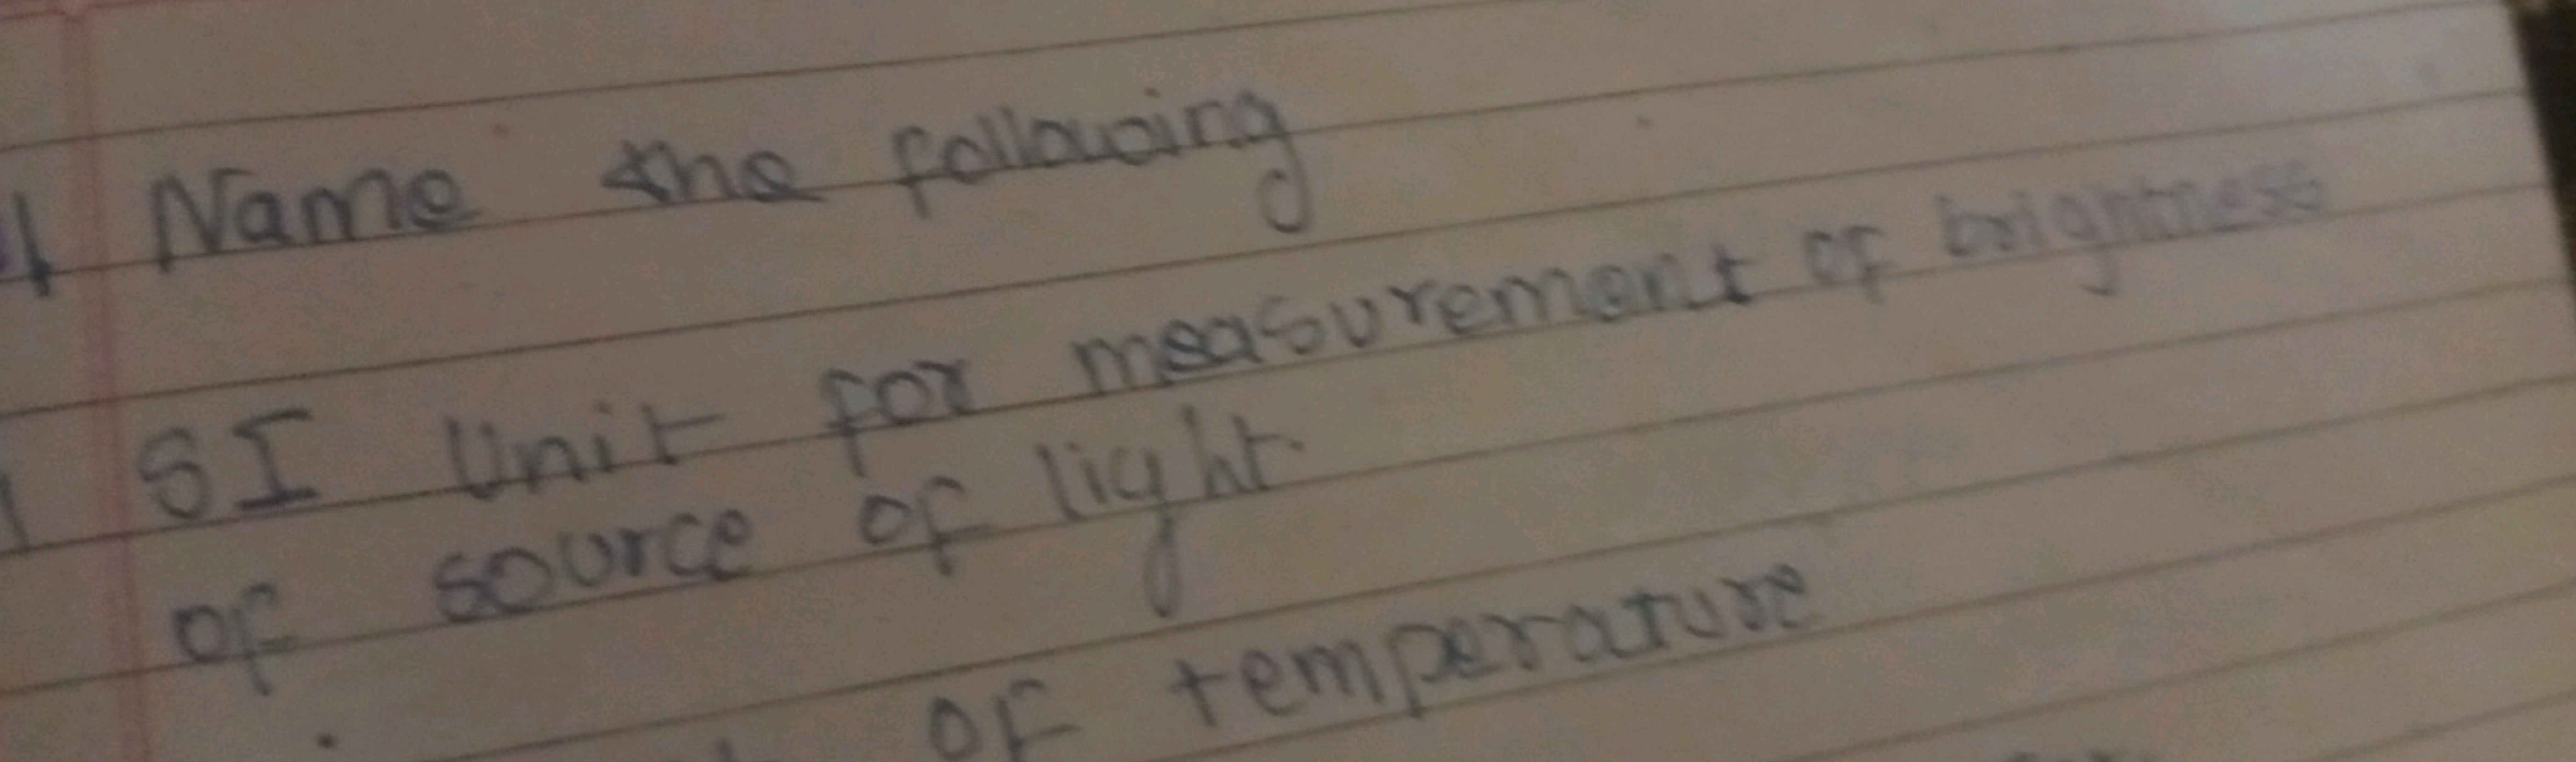 1 Name the following
SI Unit for measurement of brightness
of source of light.
of temperature